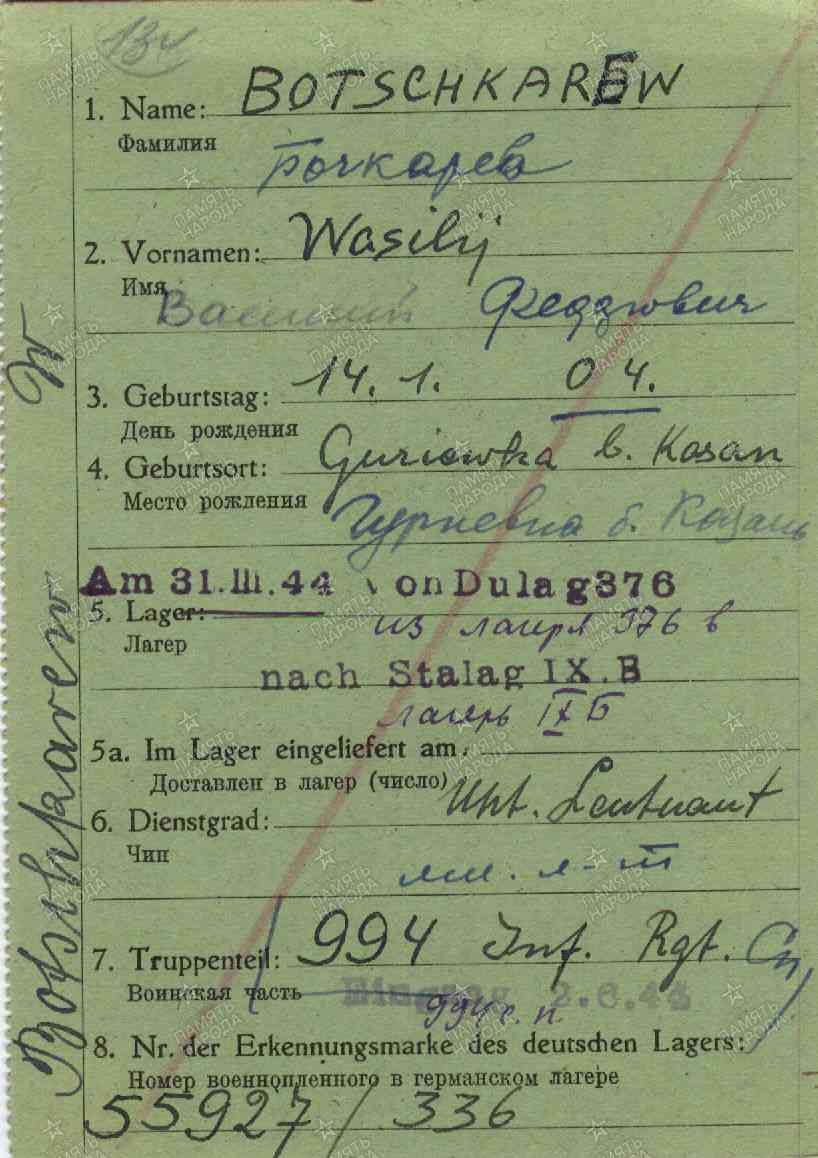 134
1. Name: BOTSCHKAREW
Фамилия
Бочкарев
2. Vornamen: Wasilij
Имя
Василий Федорович
3. Geburtstag: 14. 1. 04.
День рождения
4. Geburtsort: Guriewka b. Kasan
Место рождения
Гурьевка б. Казань
Am 31.III.44 von Dulag 376
5. Lager:
из лагеря 376 в
Лагер
nach Stalag IX.B
лагерь IX Б
5a. Im Lager eingeliefert am:
Доставлен в лагер (число)
6. Dienstgrad: Unt. Leutnant
Чин
мл. л-т
7. Truppenteil: 994 Inf. Rgt. Сп
Воинская часть
994 с. п.
8. Nr. der Erkennungsmarke des deutschen Lagers:
Номер военнопленного в германском лагере
55927 / 336
Botschkarew W
ПАМЯТЬ НАРОДА